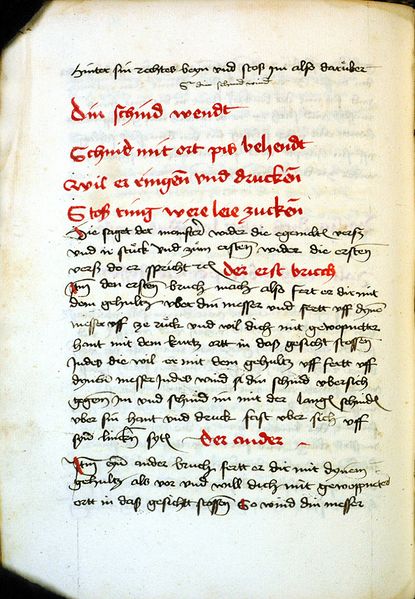 hinter sin rechtes beyn vnd stoß jm also darüber
Din schnid wendt
Schnid mit ort pis behendt
wil er ringen vnd drucken
Stos ring were leie zucken
Die saget der maister wider die gemelte verß
vnd ir stuck vnd zum ersten wider die ersten
verß do er spricht Der erst bruch
Jtm den ersten bruch mach also fert er dir mit
dem gehultz vber din messer vnd fertt vff dynem
messer vff ze ruck vnd wil dich mit gewopneter
hant mit dem kurtz ortt in das gesicht stossen
Jndes die wil er mit dem gehultz vff fertt vff
dynem messer Jndes wind din schnid vbersich
gegen jm vnd schnid jm mit der langen schnid
vber sin hant vnd druck fast vber sich vff
syn lincken syten Der ander
Jtm ein ander bruch fertt er dir mit dynem
gehultz als vor vnd will dich mit gewopneter
ortt in das gesicht stossen So wind din messer